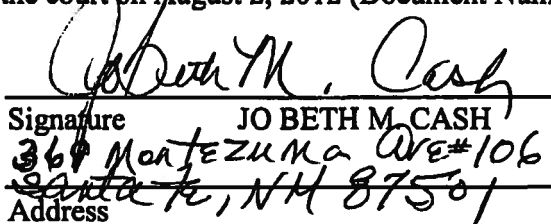 the court on August 2, 2012 (Document Nam
Jo Beth M. Cash
Signature JO BETH M. CASH
369 Montezuma Ave #106
Santa Fe, NM 87501
Address